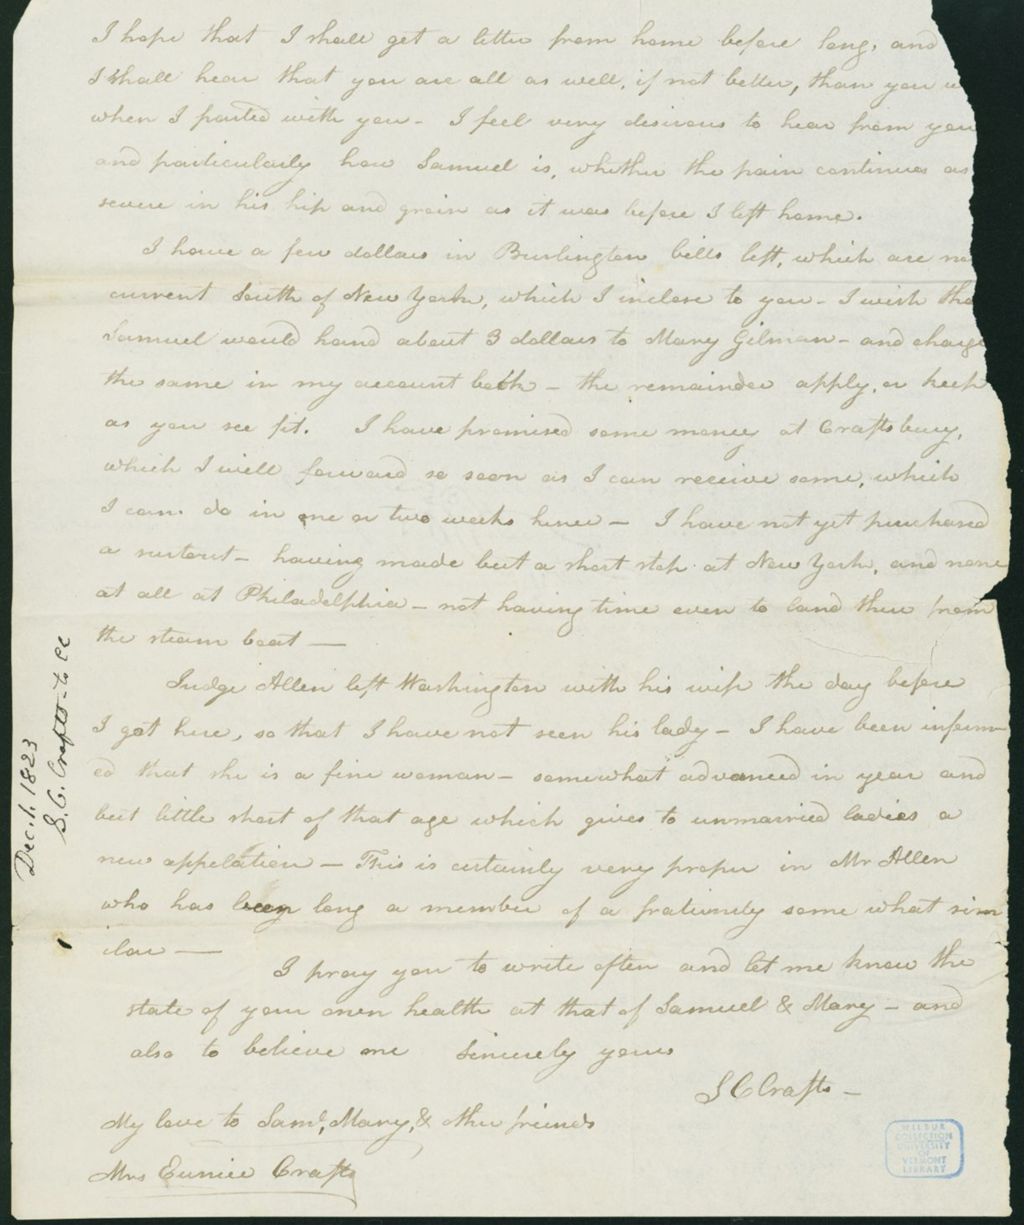 I hope that I shall get a letter from home before long, and
I shall hear that you are all as well, if not better, than you w
when I parted with you - I feel very desirous to hear from you
and particularly how Samuel is, whether the pain continues as
severe in his hip and groin as it was before I left home.
I have a few dollars in Burlington bills left, which are no
current South of New York, which I inclose to you - I wish tha
Samuel would hand about 3 dollars to Mary Gilman - and charge
the same in my account book - the remainder apply, or keep
as you see fit. I have promised some money at Craftsbury,
which I will forward so soon as I can receive some, which
I can do in one or two weeks hence - I have not yet purchased
a surtout - having made but a short stop at New York, and none
at all at Philadelphia - not having time even to land there from
the steam boat -
Judge Allen left Washington with his wife the day before
I got here, so that I have not seen his lady - I have been inform
ed that she is a fine woman - somewhat advanced in year and
but little short of that age which gives to unmarried ladies a
new appelation - This is certainly very proper in Mr Allen
who has been long a member of a fraturnity some what sim
ilar -
I pray you to write often and let me know the
state of your own health at that of Samuel & Mary - and
also to believe me Sincerely yours
S C Crafts -
My love to Saml, Mary, & other friends
Mrs Eunice Crafts
Dec. 1. 1823
S. C. Crafts - to EC
WILBUR
COLLECTION
UNIVERSITY
OF
VERMONT
LIBRARY